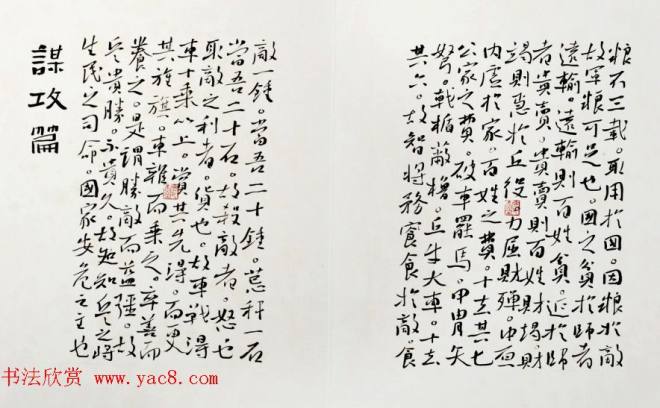 粮不三载。取用於国。因粮於敵
故軍粮可足也。国之貧於師者
遠輸。遠輸則百姓貧。近於師
者貴賣。貴賣則百姓財竭。財
竭則急於丘役。力屈財殫。中原
内虚於家。百姓之費。十去其七
公家之費。破車罷馬。甲胄矢
弩。戟楯蔽櫓。丘牛大車。十去
其六。故智将務食於敵。食
敵一鍾。當吾二十鍾。秆一石
當吾二十石。故殺敵者。怒也
取敵之利者。貨也。故車戰得
車十乘以上。賞其先得。而更
其旌旗。車雜而乘之。卒善而
養之。是謂勝敵而益强。故
兵貴勝。不貴久。故知兵之将
生民之司命。國家安危之主也
謀攻篇
书法欣赏 www.yac8.com